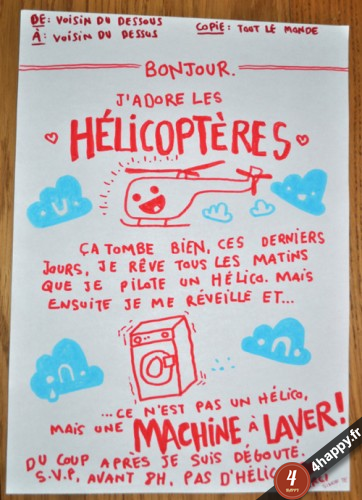 DE: VOISIN DU DESSOUS
À: VOISIN DU DESSUS
COPIE: TOUT LE MONDE
BONJOUR.
J'ADORE LES
HÉLICOPTÈRES
ÇA TOMBE BIEN, CES DERNIERS
JOURS, JE RÊVE TOUS LES MATINS
QUE JE PILOTE UN HÉLICO. MAIS
ENSUITE JE ME RÉVEILLE ET...
...CE N'EST PAS UN HÉLICO,
MAIS UNE MACHINE À LAVER!
DU COUP APRÈS JE SUIS DÉGOUTÉ.
S.V.P, AVANT 8H, PAS D'HÉLICO
4
HAPPY
4happy.fr